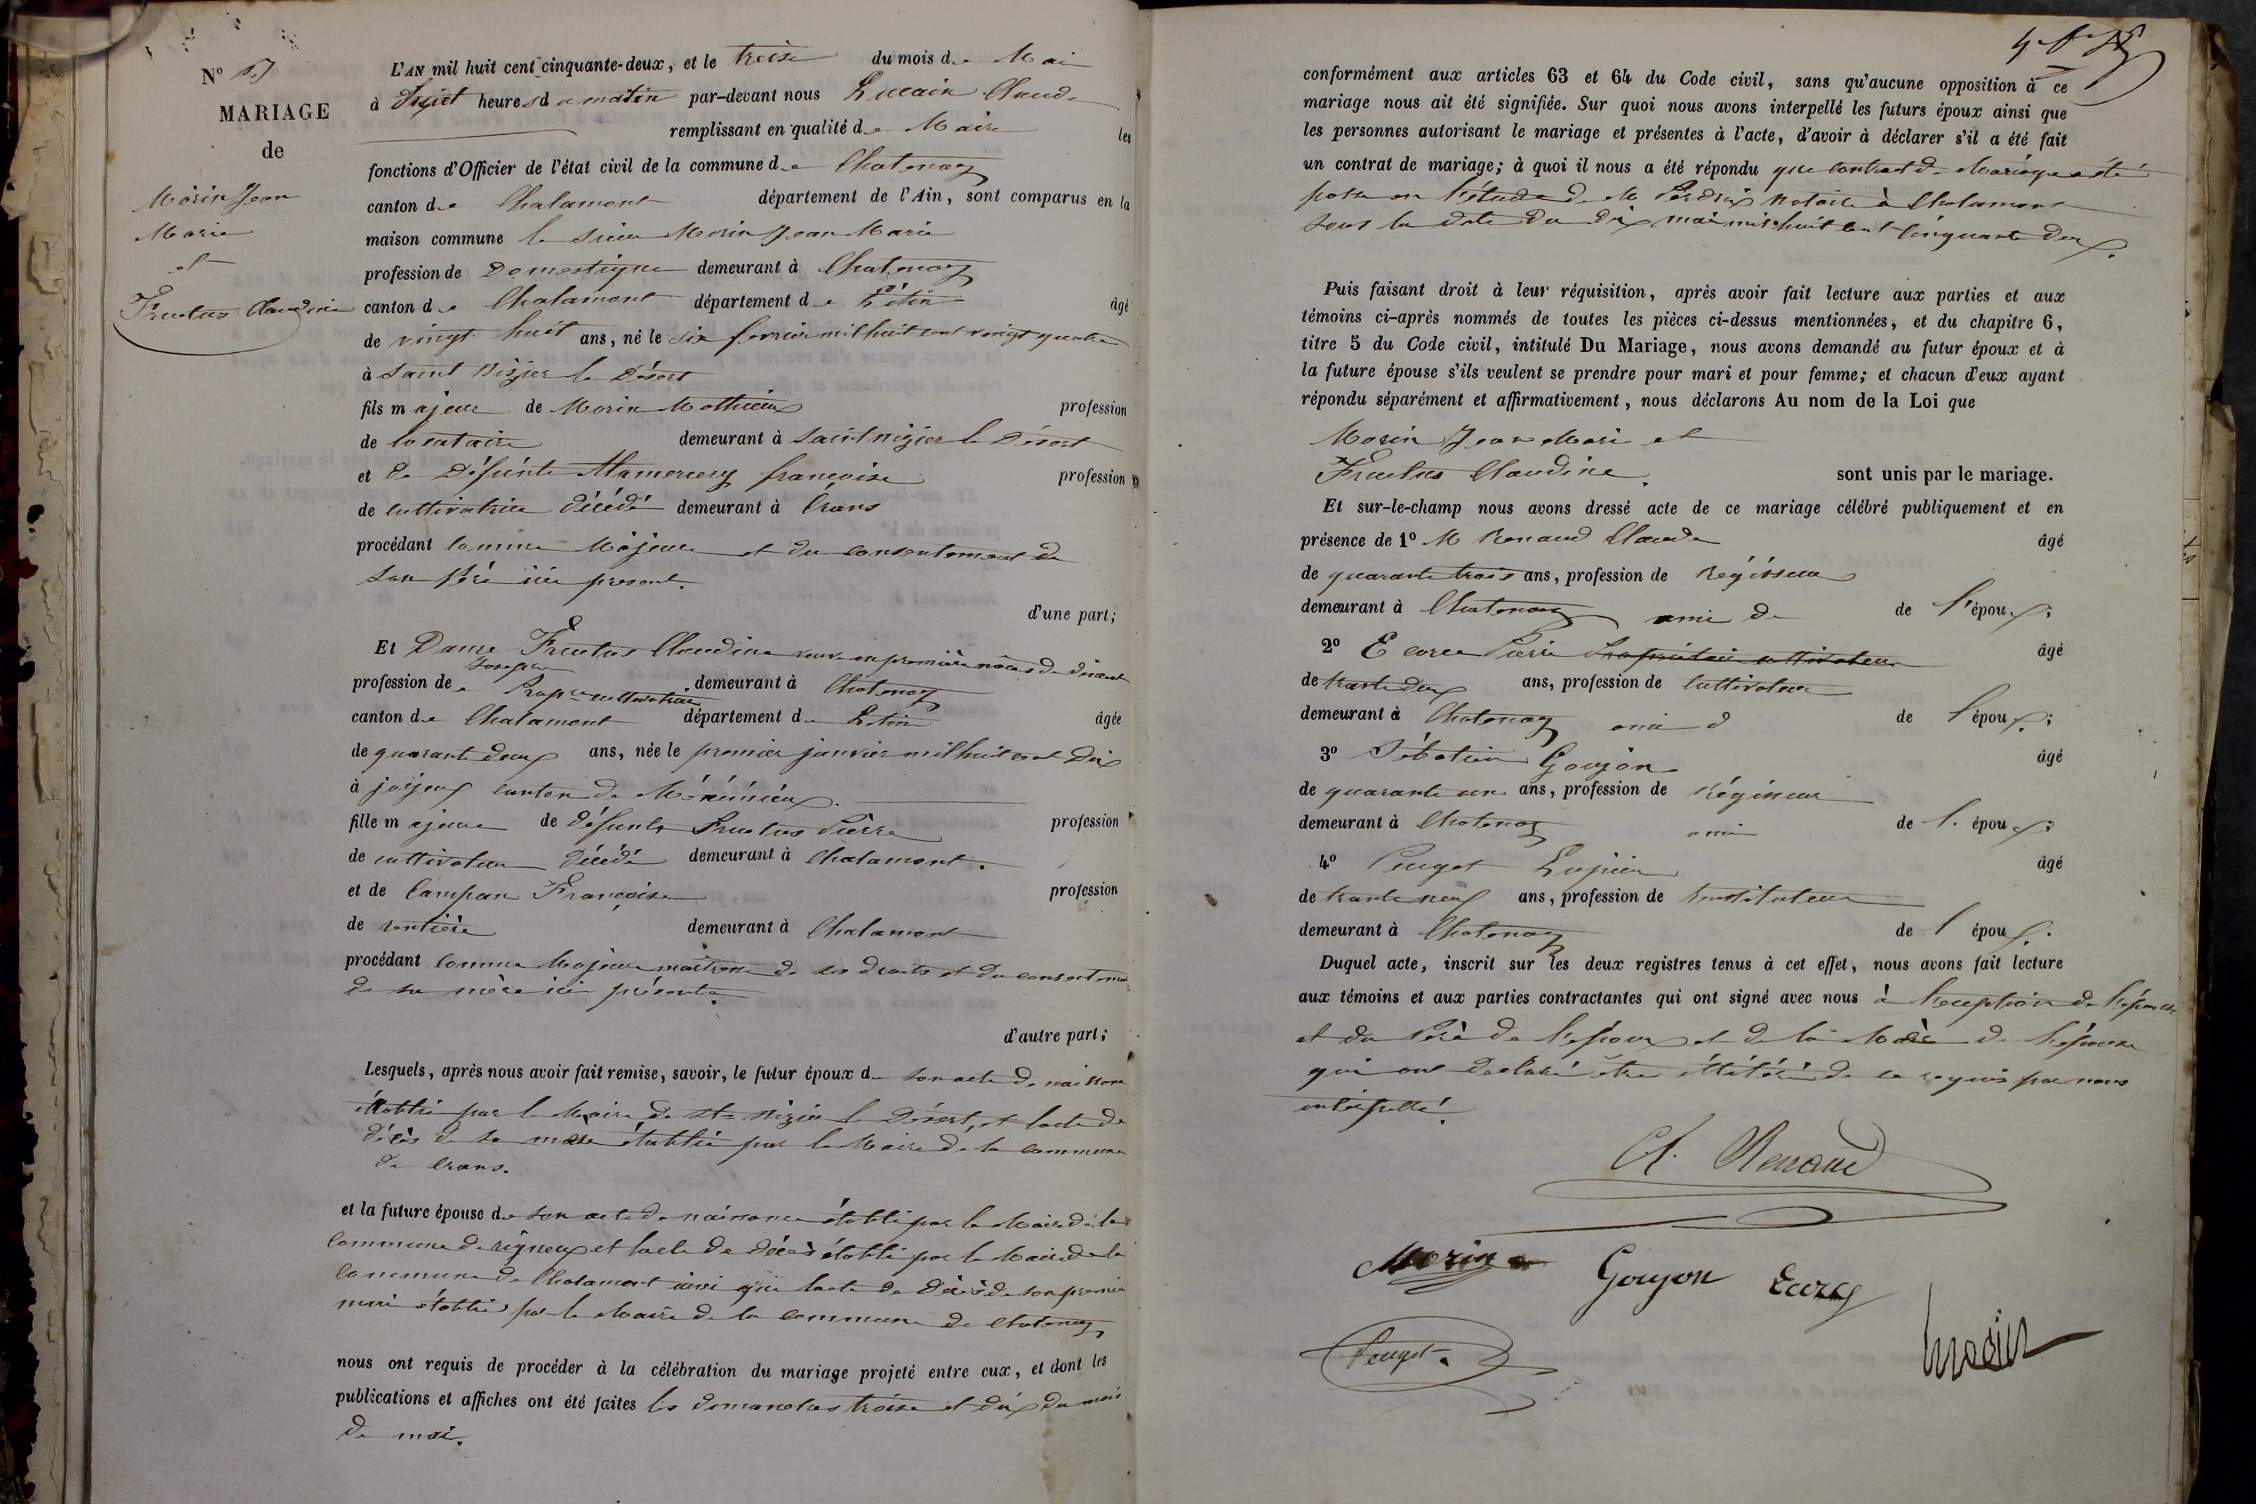 N° 5
MARIAGE
de
Morin Jean
Marie
et
Fructus Claudine
L'AN mil huit cent cinquante-deux, et le treize du mois de Mai
à Sept heures du matin par-devant nous Lucain Claude
remplissant en qualité de Maire les
fonctions d'Officier de l'état civil de la commune de Chatenay
canton de Chalamont département de l'Ain, sont comparus en la
maison commune le sieur Morin Jean Marie
profession de Domestique demeurant à Chatenay
canton de Chalamont département de L'Ain âgé
de vingt huit ans, né le six fevrier mil huit cent vingt quatre
à Saint Nizier le Désert
fils majeur de Morin Mathieu profession
de locataire demeurant à Saint nizier le Désert
et de Défunte françoise profession
de cultivatrice décédé demeurant à Crans
procédant comme Majeur et du consentement de
son père ici present.
d'une part;
Et Dame Fructus Claudine veuve en première noces de
Joseph
profession de Propre cultivatrice demeurant à Chatenay
canton de Chalamont département de L'Ain âgée
de quarante deux ans, née le premier janvier mil huit cent Dix
à joyeux canton de Méximieux.
fille majeure de défunt Fructus Pierre profession
de cultivateur Décédé demeurant à Chalamont.
et de Campan Françoise profession
de rentière demeurant à Chalamont
procédant comme Majeure maitresse de ses droits et du consentement
de sa mère ici présente.
d'autre part;
Lesquels, après nous avoir fait remise, savoir, le futur époux de son acte de naissance
établie par le Maire de St Nizier le Désert, et l'acte de
décès de sa mère établie par le Maire de la commune
de Crans.
et la future épouse de son acte de naissance établi par le Maire de la
Commune de rigneux et l'acte de décès établi par le Maire de la
Commune de Chalamont ainsi que l'acte de Décès de son premier
mari établie par le Maire de la commune de Chatenay
nous ont requis de procéder à la célébration du mariage projeté entre eux, et dont les
publications et affiches ont été faites les dimanches treize et dix du mois
de mai.
conformément aux articles 63 et 64 du Code civil, sans qu'aucune opposition à ce
mariage nous ait été signifiée. Sur quoi nous avons interpellé les futurs époux ainsi que
les personnes autorisant le mariage et présentes à l'acte, d'avoir à déclarer s'il a été fait
un contrat de mariage; à quoi il nous a été répondu que contract de Mariage a été
passé en l'étude de M Perdrix notaire à Chalamont
sous la date du dix mai mil huit cent cinquante deux.
Puis faisant droit à leur réquisition, après avoir fait lecture aux parties et aux
témoins ci-après nommés de toutes les pièces ci-dessus mentionnées, et du chapitre 6,
titre 5 du Code civil, intitulé Du Mariage, nous avons demandé au futur époux et à
la future épouse s'ils veulent se prendre pour mari et pour femme; et chacun d'eux ayant
répondu séparément et affirmativement, nous déclarons Au nom de la Loi que
Morin Jean Marie et
Fructus Claudine. sont unis par le mariage.
Et sur-le-champ nous avons dressé acte de ce mariage célébré publiquement et en
présence de 1° M Renaud Claude âgé
de quarante trois ans, profession de Régisseur
demeurant à Chatenay ami de de l'époux;
2° Pierre Propriétaire cultivateur âgé
de trente deux ans, profession de cultivateur
demeurant à Chatenay ami d de l'époux;
3° Sébatien Goujon âgé
de quarante un ans, profession de Régisseur
demeurant à Chatenay ami de l'époux;
4° Peuget âgé
de trente neuf ans, profession de Instituteur
demeurant à Chatenay de l'époux.
Duquel acte, inscrit sur les deux registres tenus à cet effet, nous avons fait lecture
aux témoins et aux parties contractantes qui ont signé avec nous à l'exception de l'épouse
et du Père de l'époux et de la Mère de l'épouse
qui ont Déclaré être illétéré de ce requis par nous
interpellé.
Cl. Renaud
Morin
Goujon
Ecorcy
Peuget